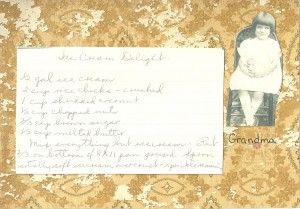 Ice Cream Delight
½ gal ice cream
2 cup rice chicks - crushed
1 cup shredded coconut
½ cup chopped nuts
½ cup brown sugar
½ cup melted butter
Mix everything but ice cream. Put
½ on bottom of 9x11 pan greased. Spoon
soft ice cream
Grandma